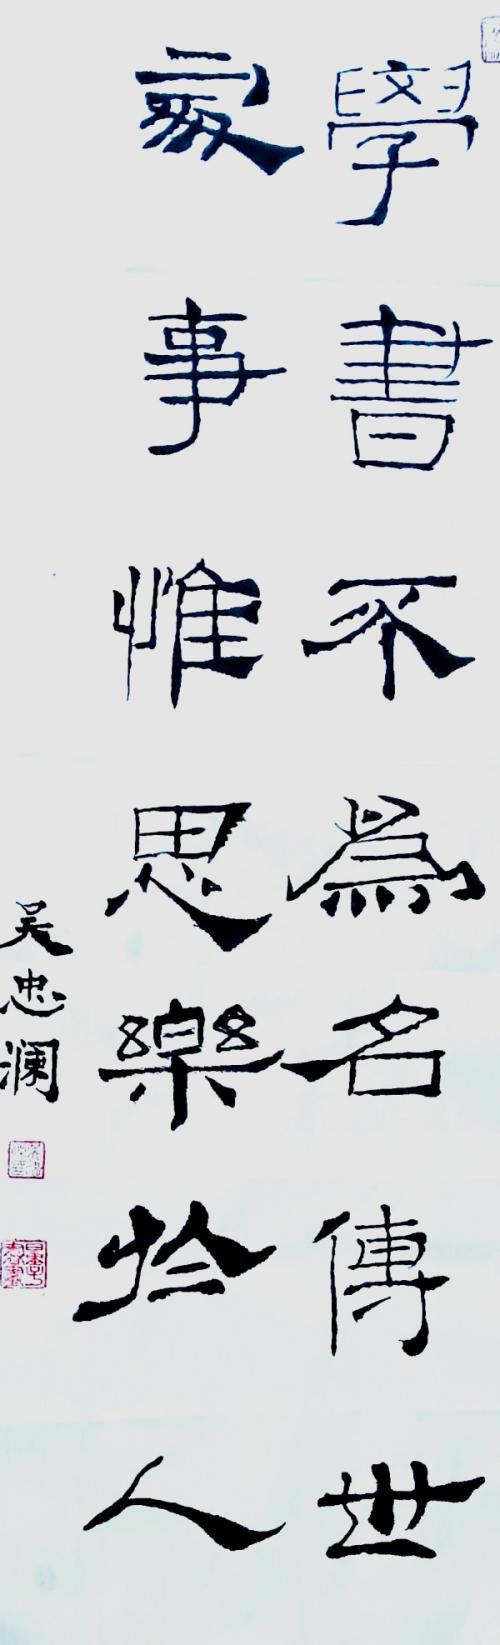 學書不為名傳世
事惟思樂於人
吴忠澜